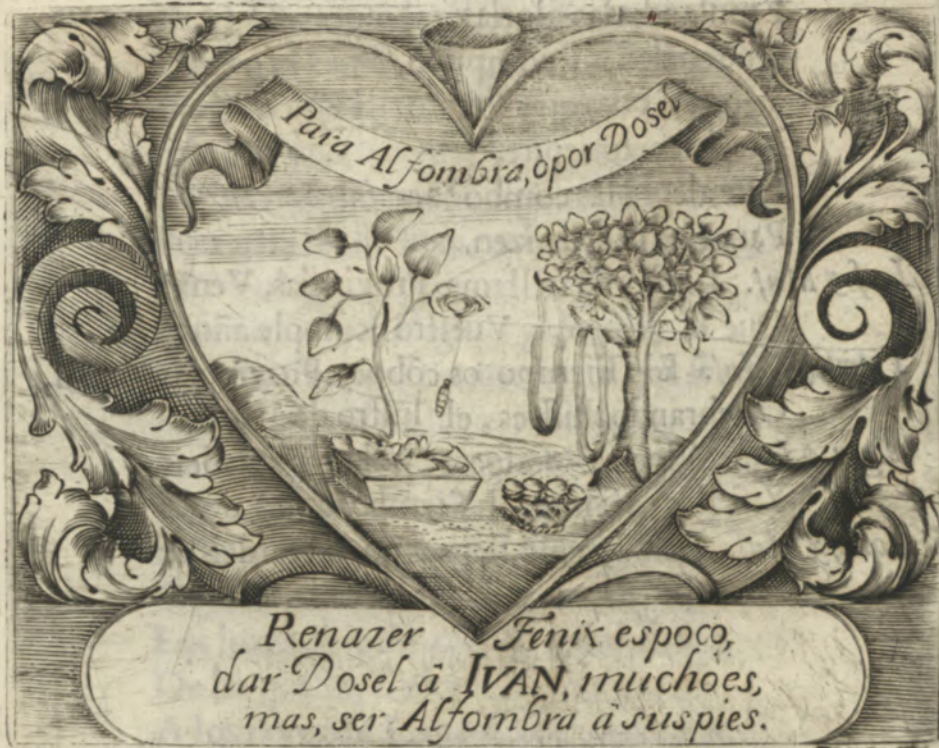 Para Alfombra, òpor Dosel
Renazer Fenix espoco,
dar Dosel â IVAN, muchoes,
mas, ser Alfombra â suspies.